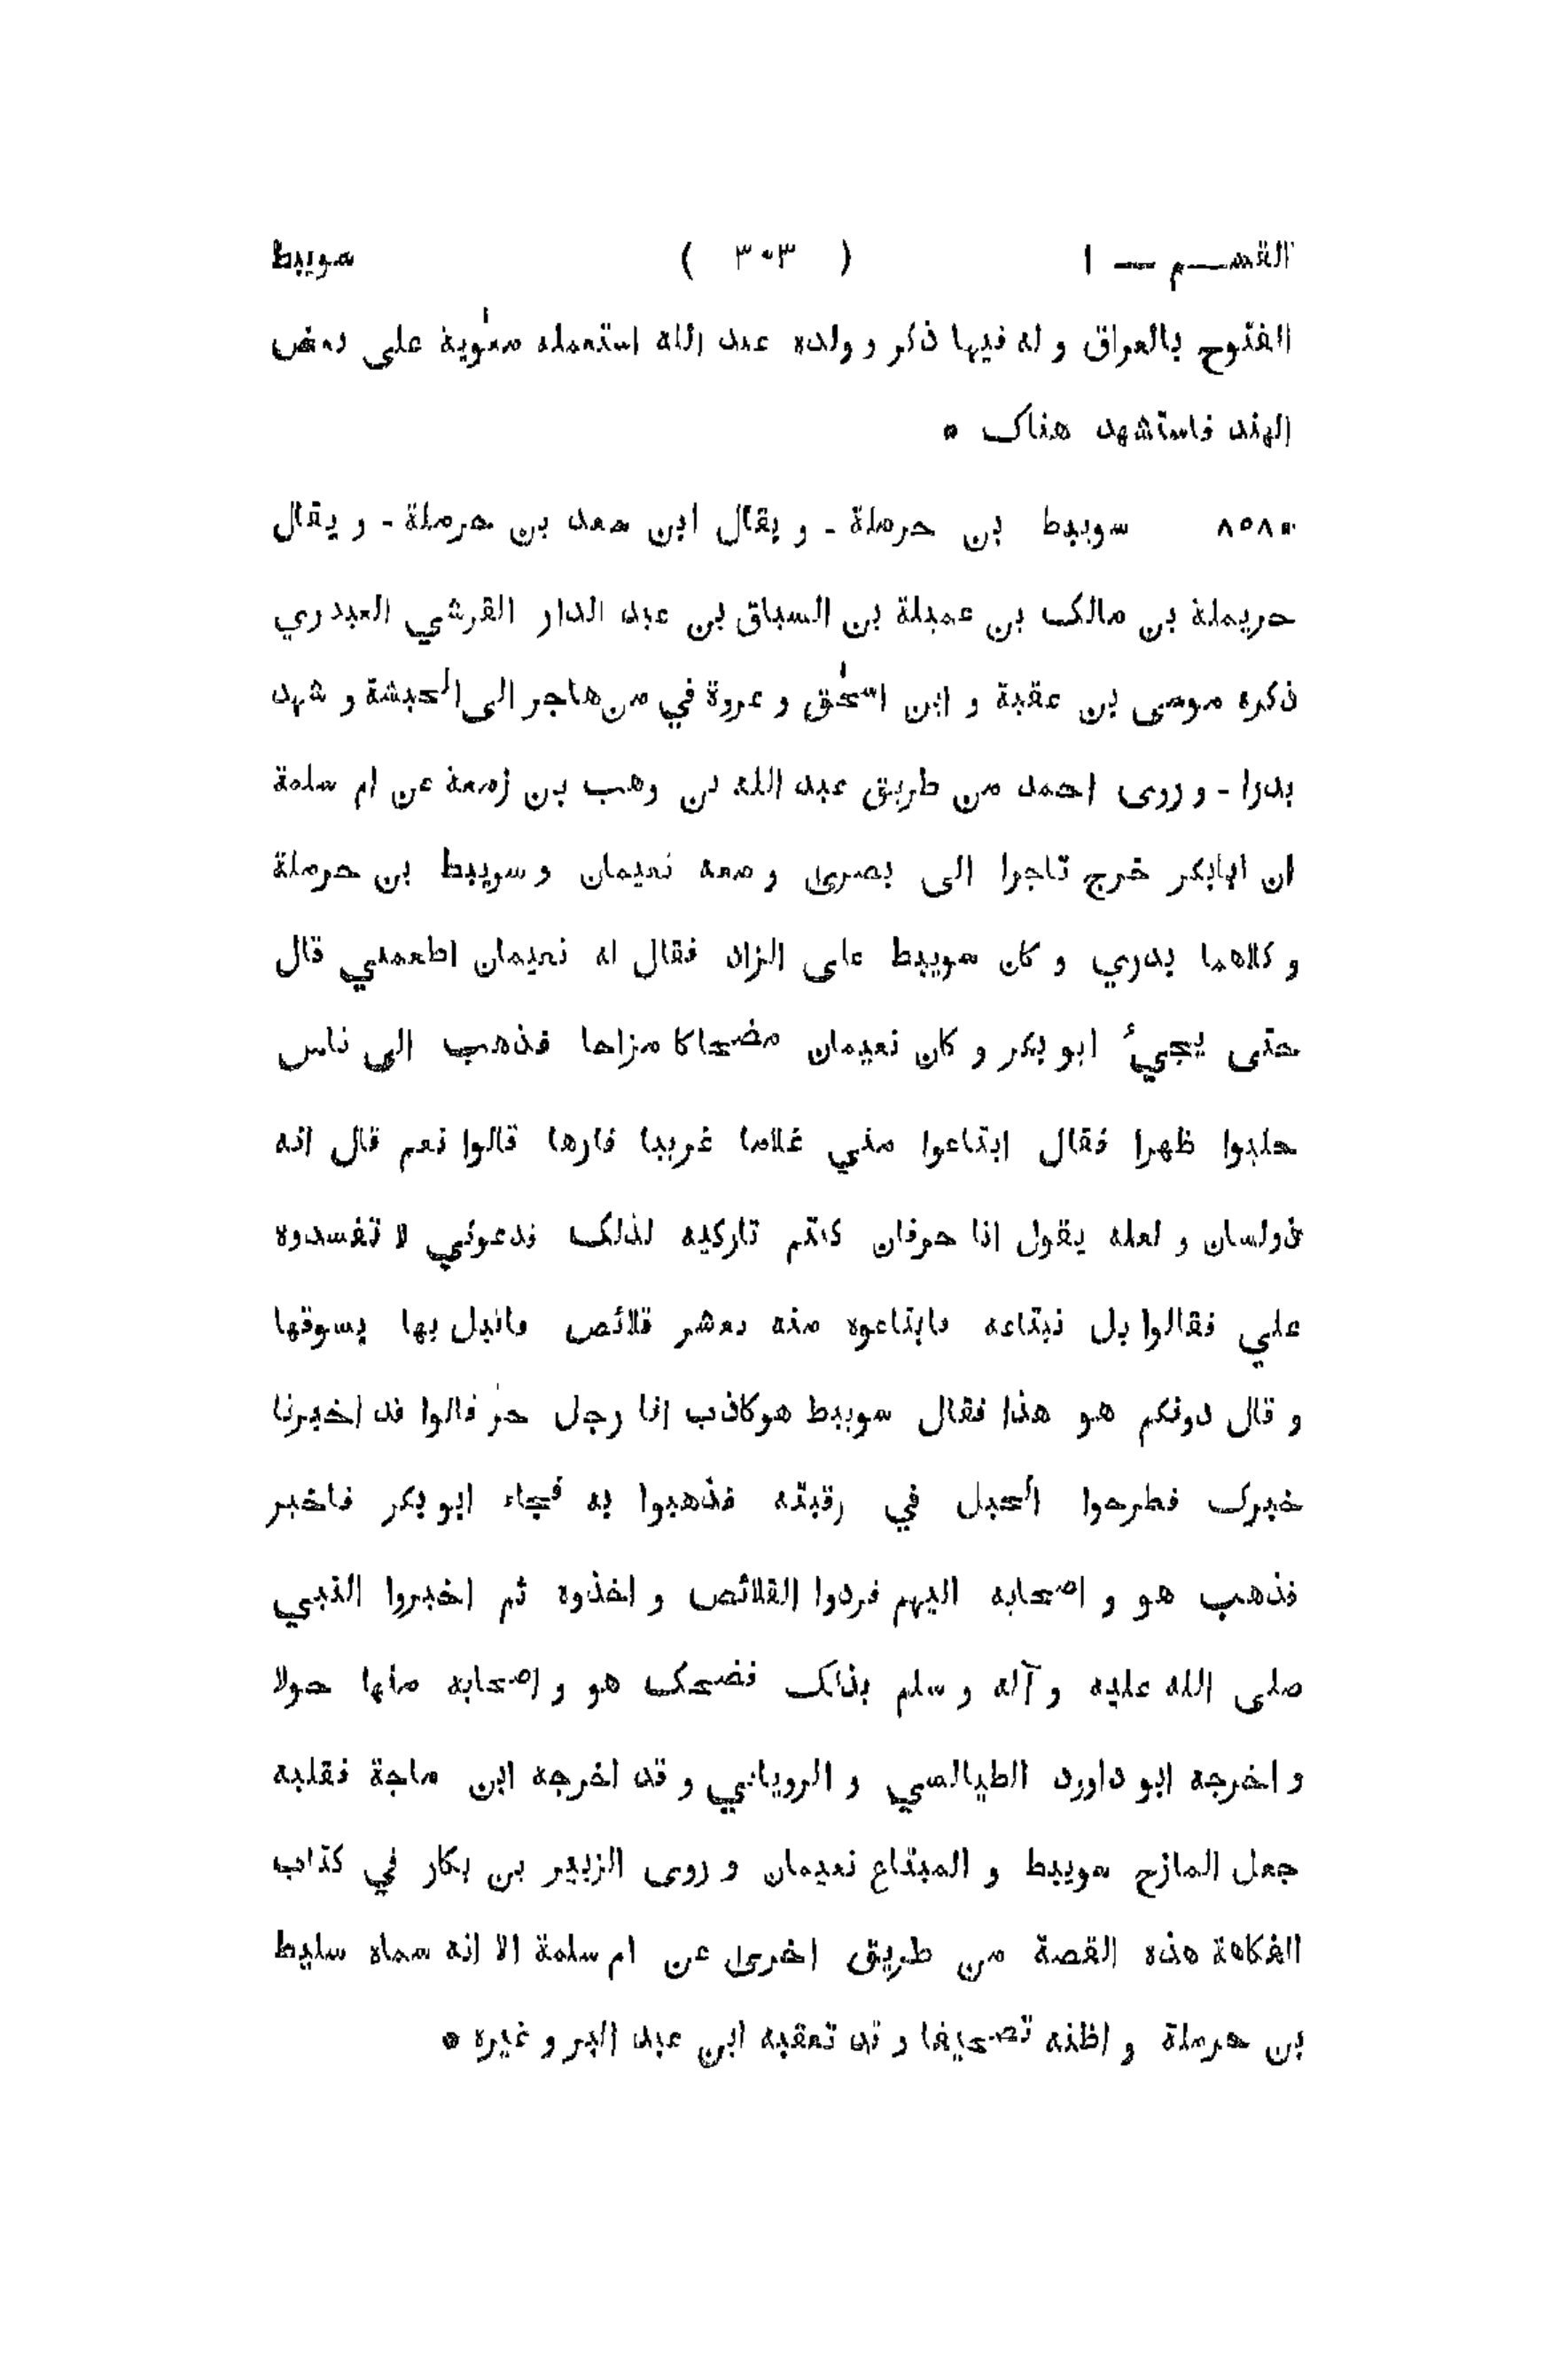 القسم — ١ ( ٣٠٣ ) سويبط
الفتوح بالعراق و له فيها ذكر و ولده عبد الله استعمله معٰوية على بعض
الهند فاستشهد هناک *
٨٥٨٠ سويبط بن حرملة - و يقال ابن سعد بن حرملة - و يقال
حريملة بن مالک بن عميلة بن السباق بن عبد الدار القرشي العبدري
ذكره موسى بن عقبة و ابن اسحٰق و عروة في من هاجر الى الحبشة و شهد
بدرا - و روى احمد من طريق عبد الله بن وهب بن زمعة عن ام سلمة
ان ابابكر خرج تاجرا الى بصرى و معه نعيمان و سويبط بن حرملة
و كلاهما بدري و كان سويبط على الزاد فقال له نعيمان اطعمني قال
حتى يجيئ ابو بكر و كان نعيمان مضحاكا مزاحا فذهب الى ناس
جلبوا ظهرا فقال ابتاعوا مني غلاما عربيا فارها قالوا نعم قال انه
ذو لسان و لعله يقول انا حر فان كنتم تاركيه لذلک فدعوني لا تفسدوه
علي فقالوا بل نبتاعه فابتاعوه منه بعشر قلائص فاقبل بها يسوقها
و قال دونكم هو هذا فقال سويبط هو كاذب انا رجل حر قالوا قد اخبرنا
خبرک فطرحوا الحبل في رقبته فذهبوا به فجاء ابو بكر فاخبر
فذهب هو و اصحابه اليهم فردوا القلائص و اخذوه ثم اخبروا النبي
صلى الله عليه و آله و سلم بذلک فضحک هو و اصحابه منها حولا
و اخرجه ابو داورد الطيالسي و الروياني و قد اخرجه ابن ماجة فقلبه
جعل المازح سويبط و المبتاع نعيمان و روى الزبير بن بكار في كتاب
الفكاهة هذه القصة من طريق اخرى عن ام سلمة الا انه سماه سليط
بن حرملة و اظنه تصحيفا و قد تعقبه ابن عبد البر و غيره *